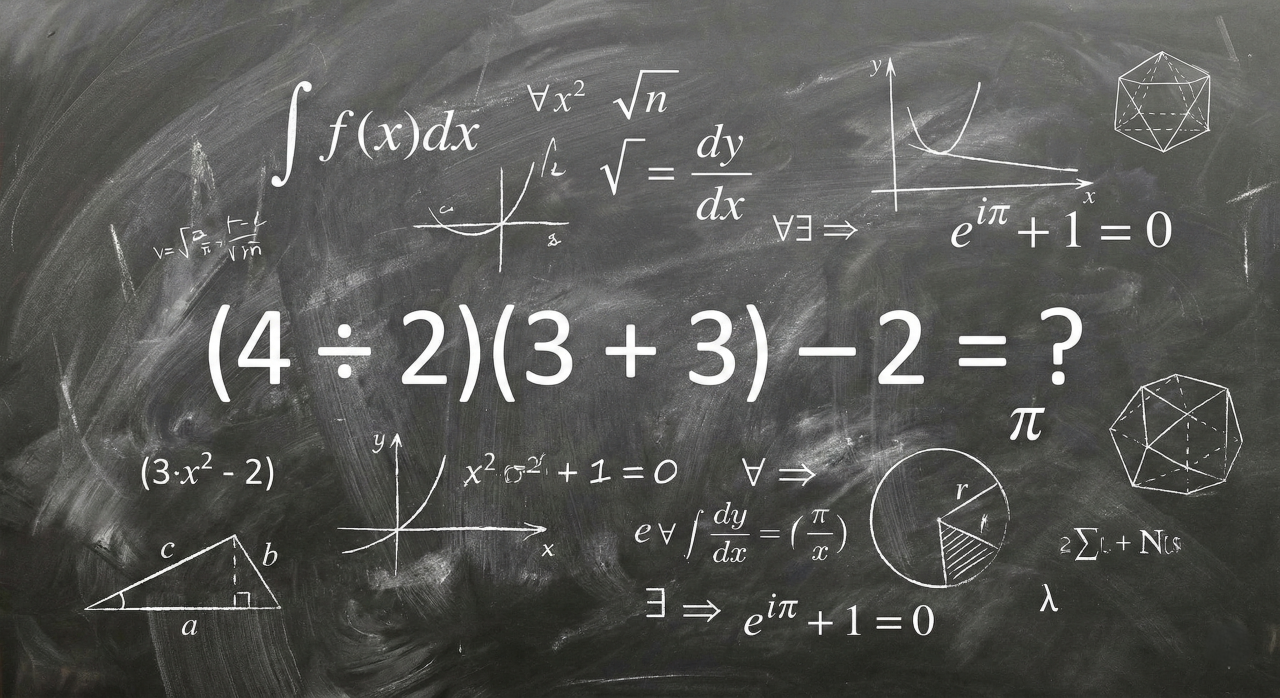 ∫ f(x)dx
∀x² √n
√ = dy/dx
y
x
∀∃ ⇒
e^{iπ} + 1 = 0
(4 ÷ 2)(3 + 3) − 2 = ?
π
(3·x² - 2)
y
x
+ 1 = 0
∀ ⇒
r
e ∀ ∫ dy/dx = (π/x)
c
b
a
∃ ⇒ e^{iπ} + 1 = 0
λ